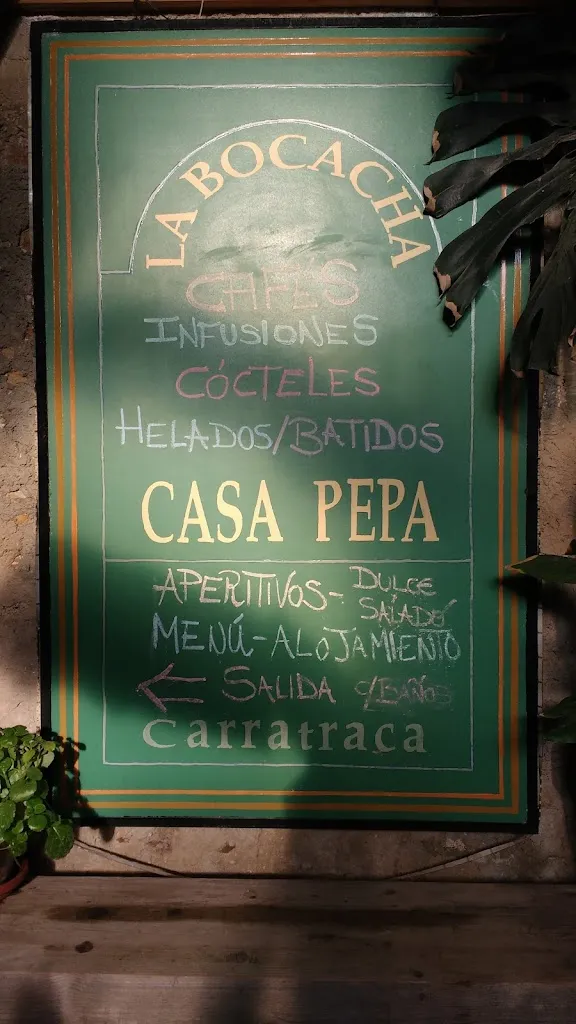 LA BOCACHA
CAFÉS
INFUSIONES
CÓCTELES
HELADOS/BATIDOS
CASA PEPA
APERITIVOS- DULCE
SALADO
MENÚ-ALOJAMIENTO
← SALIDA C/BAÑOS
Carratraca